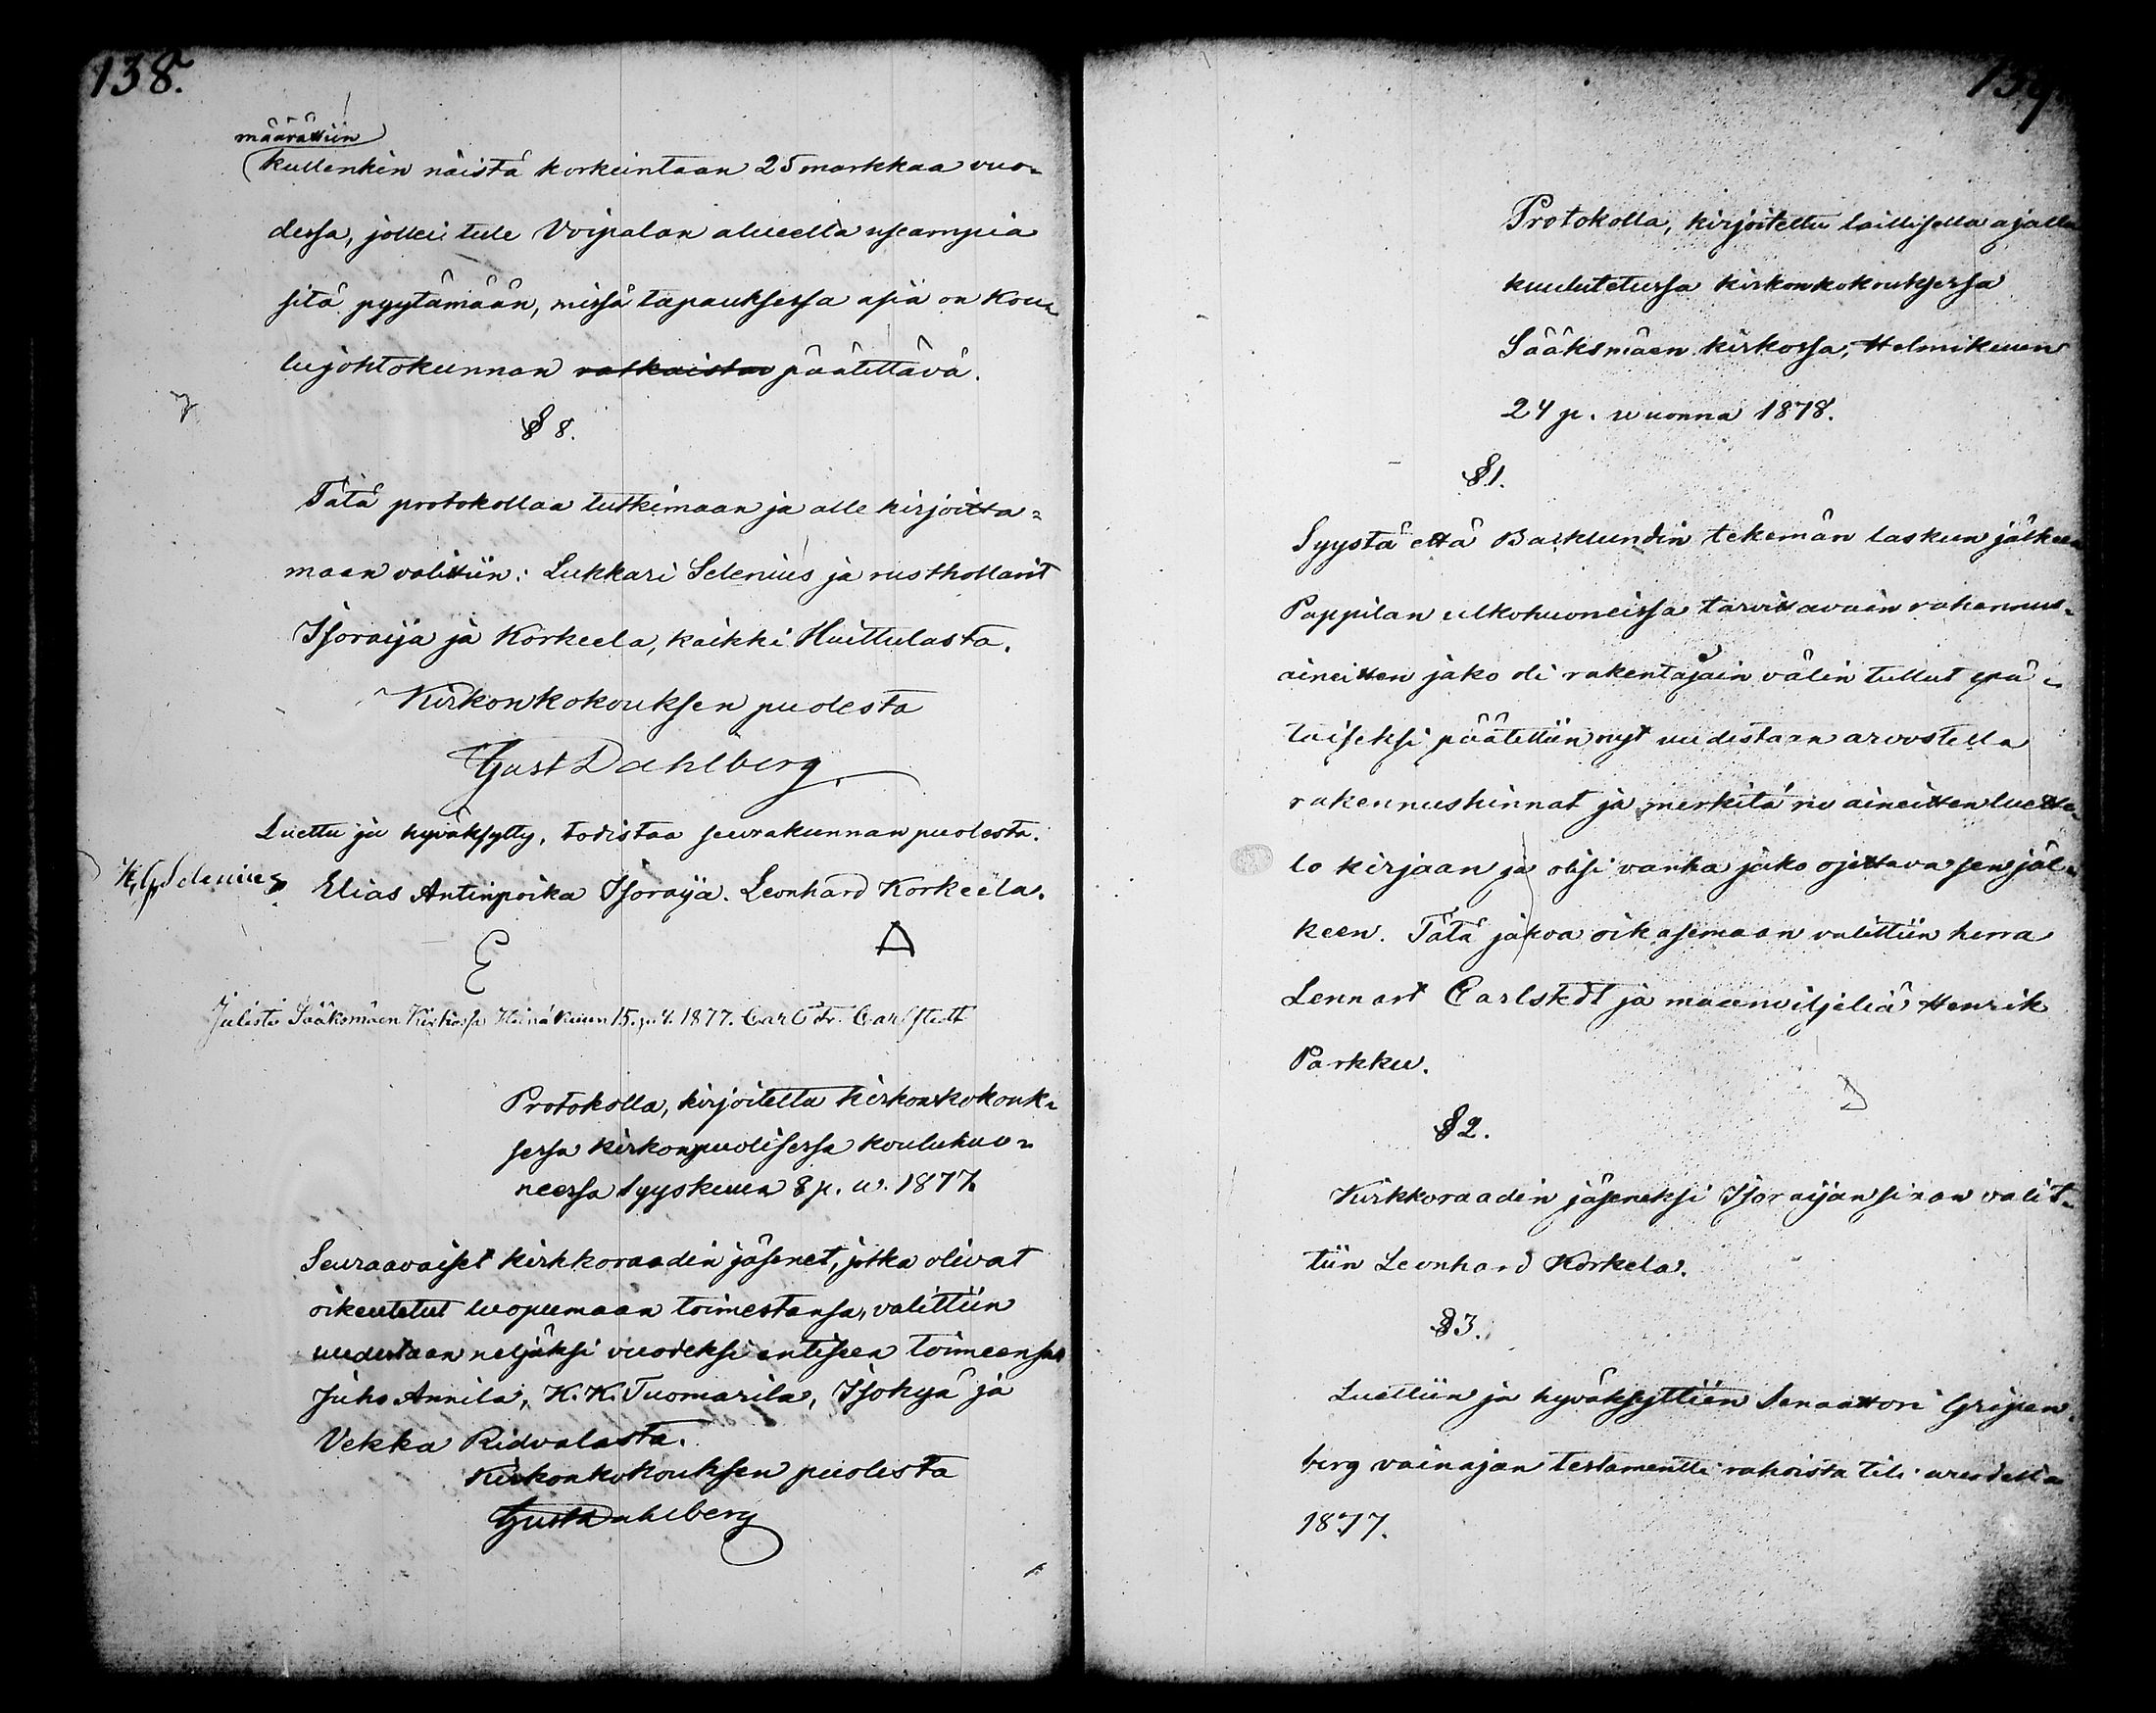 138.
määrättiin
kullenkin näistä korkeintaan 25 markkaa vuo-
dessa, jollei tule Voipalan alueella useampia
sitä pyytämään, missä tapauksessa asia on Kou-
lujohtokunnan ratkaistava päätettävä.
§ 8.
Tätä protokollaa tutkimaan ja alle kirjoitta-
maan valittiin: Lukkari Selenius ja rusthollarit
Isoraija ja Korkeela, kaikki Huittulasta.
Kirkonkokouksen puolesta
Gust Dahlberg
Luettu ja hyväksytty, todistaa seurakunnan puolesta.
K. G. Selenius. Elias Antinpoika Isoraija. Leonhard Korkeela.
E A
Julisti Sääksmäen Kirkossa Heinäkuun 15. p. 1877. Carl Fr. Carlstedt
Protokolla, kirjoitettu kirkonkokouk-
sessa kirkonpuolisessa kouluhuo-
neessa Syyskuun 8 p. w. 1877.
Seuraavaiset kirkkoraadin jäsenet, jotka olivat
oikeutetut luopumaan toimestansa, valittiin
uudestaan neljäksi vuodeksi entiseen toimeensa
Juho Annila, K. K. Tuomarila, Isokyä ja
Vekka Ridvalasta.
Kirkonkokouksen puolesta
Gust Dahlberg
139.
Protokolla, kirjoitettu laillisella ajalla
kuulutetussa kirkonkokouksessa
Sääksmäen kirkossa, Helmikuun
24 p. wuonna 1878.
§ 1.
Syystä että Backlundin tekemän laskun jälkeen
Pappilan ulkohuoneissa tarvittavain rakennus-
aineitten jako oli rakentajain välin tullut epä-
tuiseksi päätettiin nyt uudestaan arvostella
rakennushinnat ja merkitä ne aineitten luette-
lo kirjaan ja olisi vanha jako ojettava sen jäl-
keen. Tätä jakoa oikasemaan valittiin herra
Lennart Carlstedt ja maanviljeliä Henrik
Parkku.
§ 2.
Kirkkoraadin jäseneksi Isoraijan siaan valit-
tiin Leonhard Korkela.
§ 3.
Luettiin ja hyväksyttiin Senaattori Gripen-
berg vainajan testamentti rahoista tili vuodelta
1877.